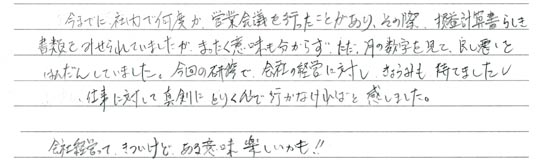 今までに社内で何度か、営業会議を行ったことがあり、その際、損益計算書らしき
書類を見せられていましたが、まったく意味も分からず、ただ、月の数字を見て、良し悪しを
はんだんしていました。今回の研修で、会社の経営に対し、きょうみも持てましたし
仕事に対して真剣にとりくんで行かなければと感じました。
会社経営って、きついけど、ある意味楽しいかも!!